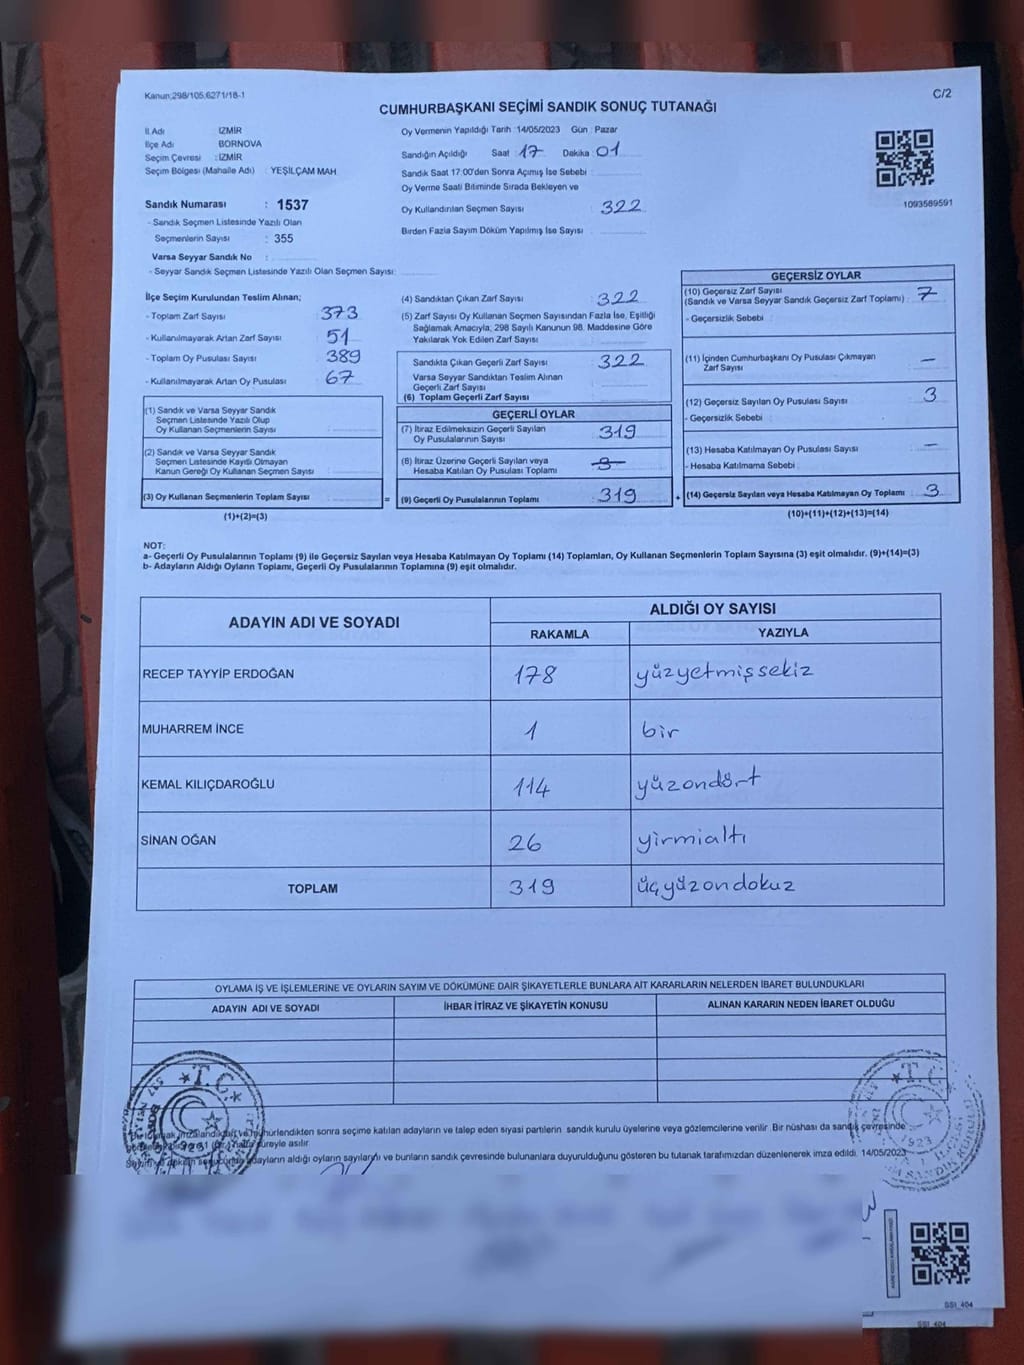 Kanun:298/105,6271/18-1
C/2
CUMHURBAŞKANI SEÇİMİ SANDIK SONUÇ TUTANAĞI
İl Adı : İZMİR
İlçe Adı : BORNOVA
Seçim Çevresi : İZMİR
Seçim Bölgesi (Mahalle Adı) : YEŞİLÇAM MAH
Sandık Numarası : 1537
- Sandık Seçmen Listesinde Yazılı Olan
Seçmenlerin Sayısı : 355
Varsa Seyyar Sandık No :
- Seyyar Sandık Seçmen Listesinde Yazılı Olan Seçmen Sayısı:
Oy Vermenin Yapıldığı Tarih :14/05/2023 Gün : Pazar
Sandığın Açıldığı Saat : 17 Dakika : 01
Sandık Saat 17:00'den Sonra Açımış İse Sebebi :
Oy Verme Saati Bitiminde Sırada Bekleyen ve
Oy Kullandırılan Seçmen Sayısı : 322
Birden Fazla Sayım Döküm Yapılmış İse Sayısı :
1093589591
İlçe Seçim Kurulundan Teslim Alınan;
- Toplam Zarf Sayısı : 373
- Kullanılmayarak Artan Zarf Sayısı : 51
- Toplam Oy Pusulası Sayısı : 389
- Kullanılmayarak Artan Oy Pusulası : 67
(1) Sandık ve Varsa Seyyar Sandık
Seçmen Listesinde Yazılı Olup
Oy Kullanan Seçmenlerin Sayısı :
(2) Sandık ve Varsa Seyyar Sandık
Seçmen Listesinde Kayıtlı Olmayan
Kanun Gereği Oy Kullanan Seçmen Sayısı :
(3) Oy Kullanan Seçmenlerin Toplam Sayısı : =
(1)+(2)=(3)
(4) Sandıktan Çıkan Zarf Sayısı : 322
(5) Zarf Sayısı Oy Kullanan Seçmen Sayısından Fazla İse, Eşitliği
Sağlamak Amacıyla; 298 Sayılı Kanunun 98. Maddesine Göre
Yakılarak Yok Edilen Zarf Sayısı :
Sandıkta Çıkan Geçerli Zarf Sayısı : 322
Varsa Seyyar Sandıktan Teslim Alınan
Geçerli Zarf Sayısı :
(6) Toplam Geçerli Zarf Sayısı :
GEÇERLİ OYLAR
(7) İtiraz Edilmeksizin Geçerli Sayılan
Oy Pusulalarının Sayısı : 319
(8) İtiraz Üzerine Geçerli Sayılan veya
Hesaba Katılan Oy Pusulası Toplamı : 3
(9) Geçerli Oy Pusulalarının Toplamı : 319 +
GEÇERSİZ OYLAR
(10) Geçersiz Zarf Sayısı
(Sandık ve Varsa Seyyar Sandık Geçersiz Zarf Toplamı) : 7
- Geçersizlik Sebebi :
(11) İçinden Cumhurbaşkanı Oy Pusulası Çıkmayan
Zarf Sayısı : —
(12) Geçersiz Sayılan Oy Pusulası Sayısı : 3
- Geçersizlik Sebebi :
(13) Hesaba Katılmayan Oy Pusulası Sayısı : —
- Hesaba Katılmama Sebebi :
(14) Geçersiz Sayılan veya Hesaba Katılmayan Oy Toplamı : 3
(10)+(11)+(12)+(13)=(14)
NOT:
a- Geçerli Oy Pusulalarının Toplamı (9) ile Geçersiz Sayılan veya Hesaba Katılmayan Oy Toplamı (14) Toplamları, Oy Kullanan Seçmenlerin Toplam Sayısına (3) eşit olmalıdır. (9)+(14)=(3)
b- Adayların Aldığı Oyların Toplamı, Geçerli Oy Pusulalarının Toplamına (9) eşit olmalıdır.
ADAYIN ADI VE SOYADI
ALDIĞI OY SAYISI
RAKAMLA YAZIYLA
RECEP TAYYİP ERDOĞAN 178 yüzyetmişsekiz
MUHARREM İNCE 1 bir
KEMAL KILIÇDAROĞLU 114 yüzondört
SİNAN OĞAN 26 yirmialtı
TOPLAM 319 üçyüzondokuz
OYLAMA İŞ VE İŞLEMLERİNE VE OYLARIN SAYIM VE DÖKÜMÜNE DAİR ŞİKAYETLERLE BUNLARA AİT KARARLARIN NELERDEN İBARET BULUNDUKLARI
ADAYIN ADI VE SOYADI İHBAR İTİRAZ VE ŞİKAYETİN KONUSU ALINAN KARARIN NEDEN İBARET OLDUĞU
T.C.
T.C.
1923
mühürlendikten sonra seçime katılan adayların ve talep eden siyasi partilerin sandık kurulu üyelerine veya gözlemcilerine verilir. Bir nüshası da sandık çevresinde
süreyle asılır
adayların aldığı oyların sayılarını ve bunların sandık çevresinde bulunanlara duyurulduğunu gösteren bu tutanak tarafımızdan düzenlenerek imza edildi. 14/05/2023
SSI_404
SSI_404